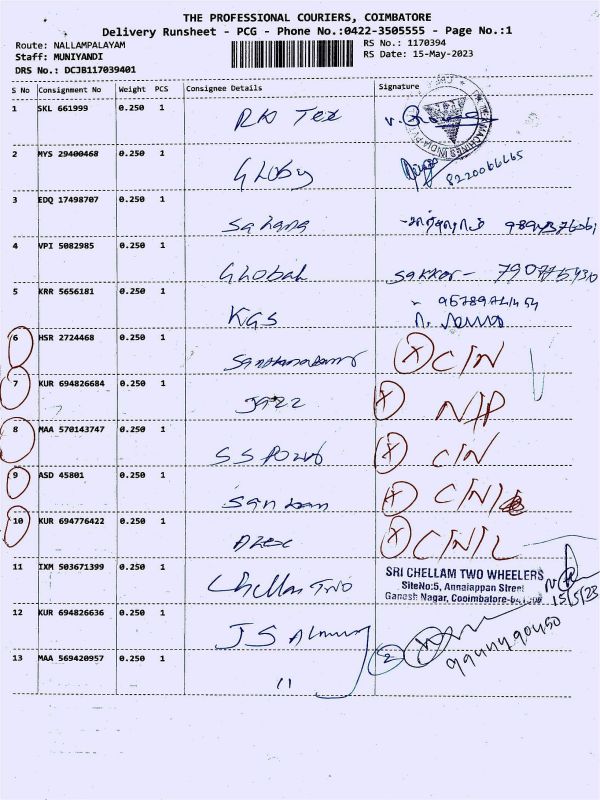 THE PROFESSIONAL COURIERS, COIMBATORE
Delivery Runsheet - PCG - Phone No.:0422-3505555 - Page No.:1
Route: NALLAMPALAYAM RS No.: 1170394
Staff: MUNIYANDI RS Date: 15-May-2023
DRS No.: DCJB117039401
S No Consignment No Weight PCS Consignee Details Signature
1 SKL 661999 0.250 1 RK Tex
2 MYS 29400468 0.250 1 Globy
8220066465
3 EDQ 17498707 0.250 1 Sahana
4 VPI 5082985 0.250 1 Global Sakkar -
5 KRR 5656181 0.250 1 KGS
6 HSR 2724468 0.250 1 X C/N
7 KUR 694826684 0.250 1 Jazz X N/P
8 MAA 570143747 0.250 1 S S X C/N
9 ASD 45801 0.250 1 X C/N
10 KUR 694776422 0.250 1 Alex X C/N/L
11 IXM 503671399 0.250 1 Chellam Two
SRI CHELLAM TWO WHEELERS
SiteNo:5, Annaiappan Street
Ganesh Nagar, Cooimbatore-641
15/5/23
12 KUR 694826636 0.250 1 JS
2
13 MAA 569420957 0.250 1 11